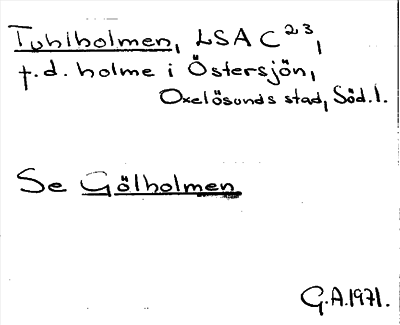 Tuhlholmen, LSA C²³,
f.d. holme i Östersjön,
Oxelösunds stad, Söd.l.
Se Gölholmen
G.A.1971.